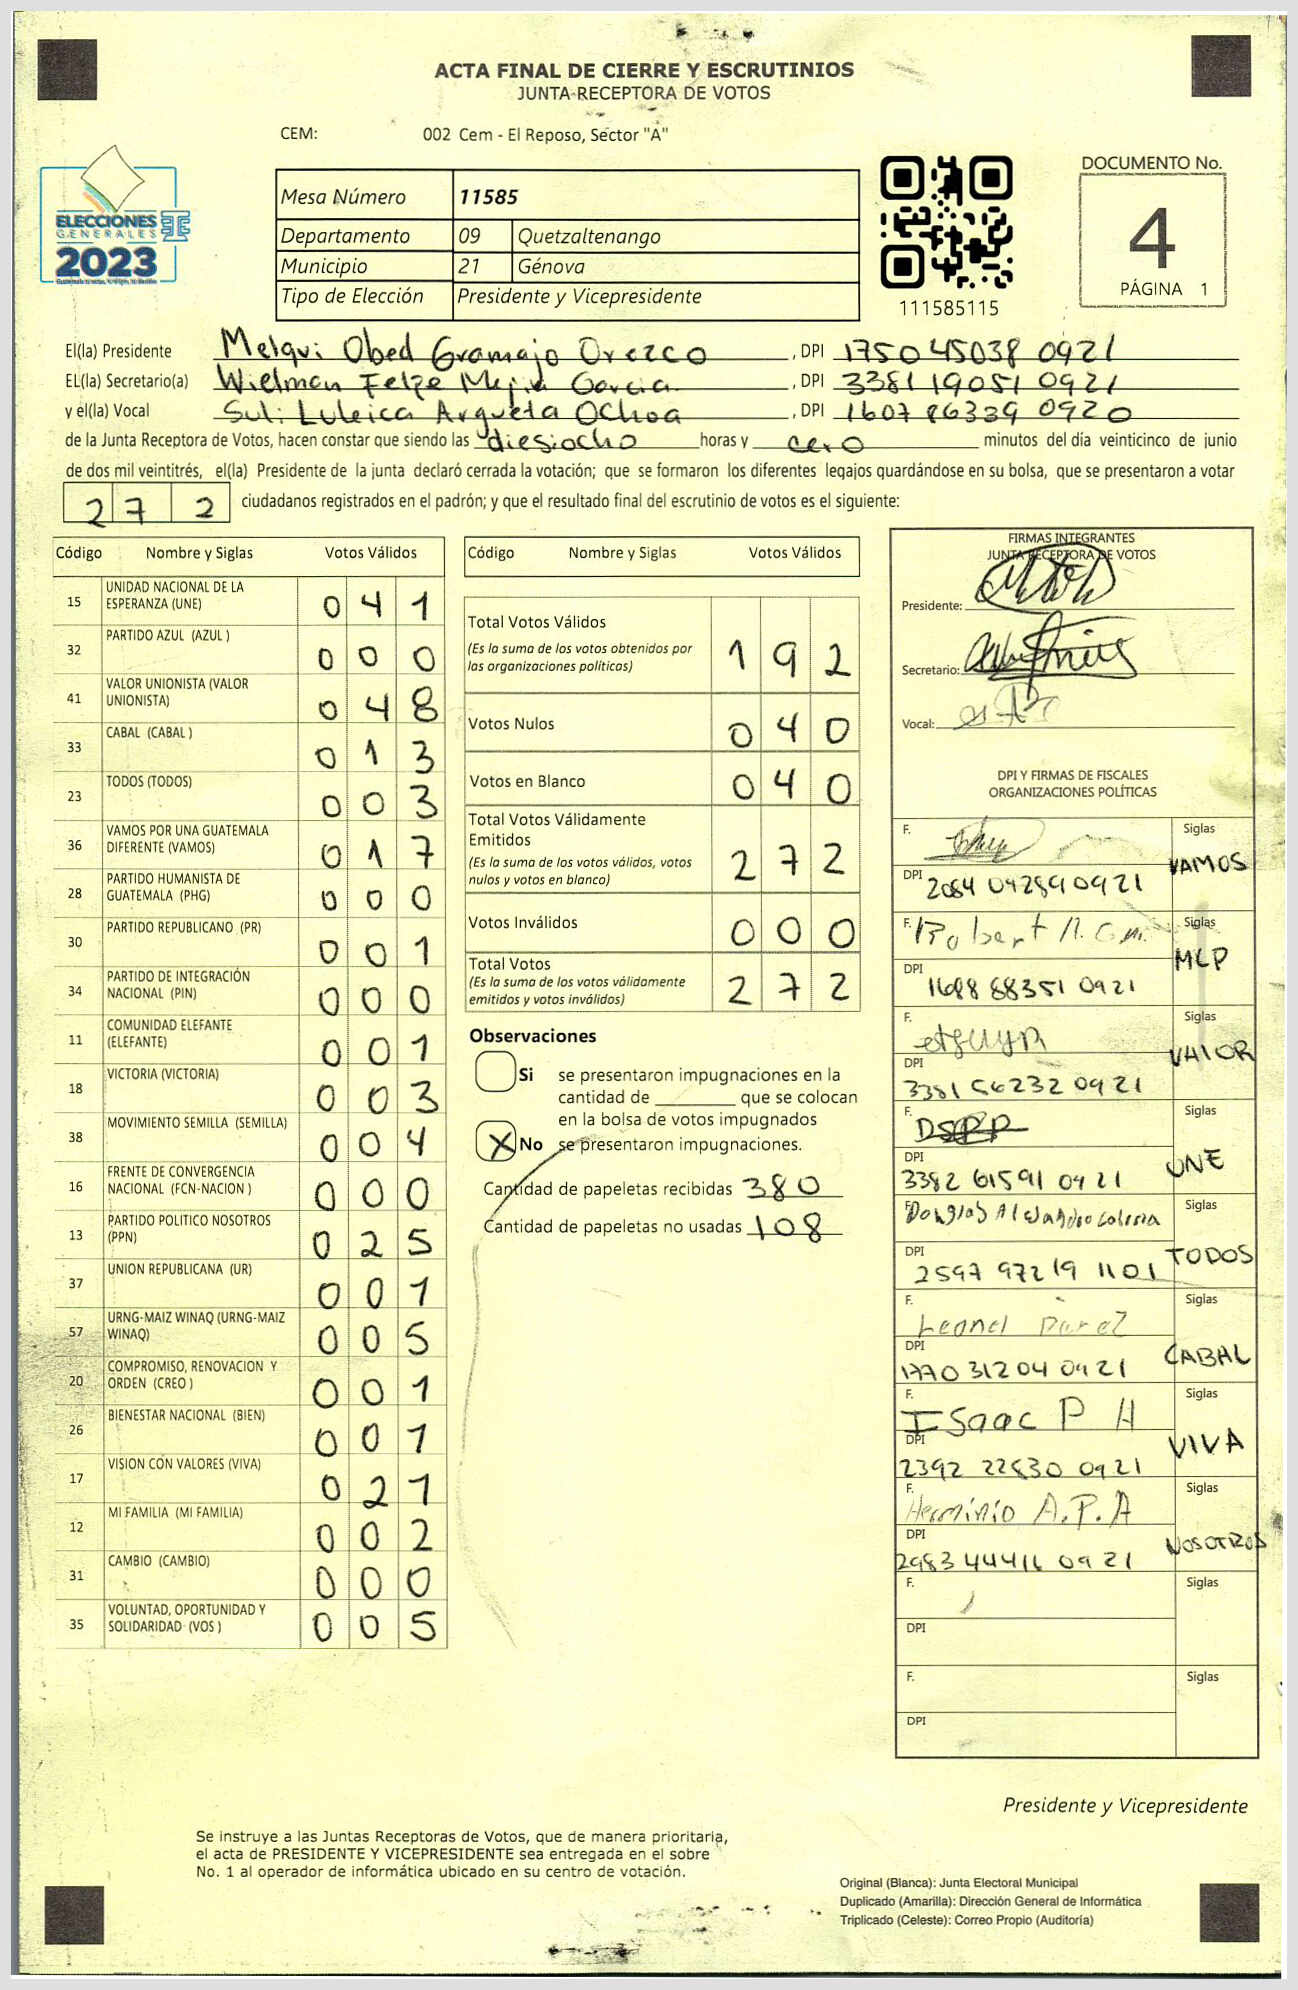 ACTA FINAL DE CIERRE Y ESCRUTINIOS
JUNTA RECEPTORA DE VOTOS
CEM: 002 Cem - El Reposo, Sector "A"
ELECCIONES
GENERALES
2023
Mesa Número 11585
Departamento 09 Quetzaltenango
Municipio 21 Génova
Tipo de Elección Presidente y Vicepresidente
111585115
DOCUMENTO No.
4
PÁGINA 1
El(la) Presidente Melqui Obed Gramajo Orozco , DPI 175045038 0921
EL(la) Secretario(a) Wielman Felipe Mejia Garcia , DPI 3381 19051 0921
y el(la) Vocal Sul: Luleica Argueta Ochoa , DPI 1607 86339 0920
de la Junta Receptora de Votos, hacen constar que siendo las diesiocho horas y cero minutos del día veinticinco de junio
de dos mil veintitrés, el(la) Presidente de la junta declaró cerrada la votación; que se formaron los diferentes legajos quardándose en su bolsa, que se presentaron a votar
272 ciudadanos registrados en el padrón; y que el resultado final del escrutinio de votos es el siguiente:
Código Nombre y Siglas Votos Válidos
15 UNIDAD NACIONAL DE LA ESPERANZA (UNE) 041
32 PARTIDO AZUL (AZUL ) 000
41 VALOR UNIONISTA (VALOR UNIONISTA) 048
33 CABAL (CABAL ) 013
23 TODOS (TODOS) 003
36 VAMOS POR UNA GUATEMALA DIFERENTE (VAMOS) 017
28 PARTIDO HUMANISTA DE GUATEMALA (PHG) 000
30 PARTIDO REPUBLICANO (PR) 001
34 PARTIDO DE INTEGRACIÓN NACIONAL (PIN) 000
11 COMUNIDAD ELEFANTE (ELEFANTE) 001
18 VICTORIA (VICTORIA) 003
38 MOVIMIENTO SEMILLA (SEMILLA) 004
16 FRENTE DE CONVERGENCIA NACIONAL (FCN-NACION ) 000
13 PARTIDO POLITICO NOSOTROS (PPN) 025
37 UNION REPUBLICANA (UR) 001
57 URNG-MAIZ WINAQ (URNG-MAIZ WINAQ) 005
20 COMPROMISO, RENOVACION Y ORDEN (CREO ) 001
26 BIENESTAR NACIONAL (BIEN) 001
17 VISION CON VALORES (VIVA) 021
12 MI FAMILIA (MI FAMILIA) 002
31 CAMBIO (CAMBIO) 000
35 VOLUNTAD, OPORTUNIDAD Y SOLIDARIDAD (VOS ) 005
Código Nombre y Siglas Votos Válidos
Total Votos Válidos 192
(Es la suma de los votos obtenidos por las organizaciones políticas)
Votos Nulos 040
Votos en Blanco 040
Total Votos Válidamente Emitidos 272
(Es la suma de los votos válidos, votos nulos y votos en blanco)
Votos Inválidos 000
Total Votos 272
(Es la suma de los votos válidamente emitidos y votos inválidos)
Observaciones
Si se presentaron impugnaciones en la
cantidad de ________ que se colocan
en la bolsa de votos impugnados
X No se presentaron impugnaciones.
Cantidad de papeletas recibidas 380
Cantidad de papeletas no usadas 108
FIRMAS INTEGRANTES
JUNTA RECEPTORA DE VOTOS
Presidente:
Secretario:
Vocal:
DPI Y FIRMAS DE FISCALES
ORGANIZACIONES POLÍTICAS
F. Siglas VAMOS
DPI 2084 04289 0921
F. Robert Siglas MLP
DPI 1688 88351 0921
F. Siglas VALOR
DPI 3381 56232 0921
F. Siglas UNE
DPI 3382 61591 0921
F. Douglas Alejandro Siglas TODOS
DPI 2597 97219 1101
F. Leonel Siglas CABAL
DPI 1770 31204 0921
F. Isaac P H Siglas VIVA
DPI 2392 22830 0921
F. Herminio A.P.A Siglas NOSOTROS
DPI 2983 44416 0921
F. Siglas
DPI
F. Siglas
DPI
Presidente y Vicepresidente
Se instruye a las Juntas Receptoras de Votos, que de manera prioritaria,
el acta de PRESIDENTE Y VICEPRESIDENTE sea entregada en el sobre
No. 1 al operador de informática ubicado en su centro de votación.
Original (Blanca): Junta Electoral Municipal
Duplicado (Amarilla): Dirección General de Informática
Triplicado (Celeste): Correo Propio (Auditoría)